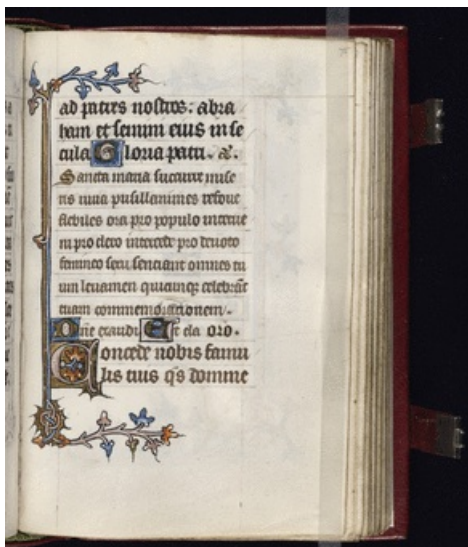 ad patres nostros: abra
ham et semini eius in se
cula Gloria patri. &.
Sancta maria succurre mise
ris iuua pusillanimes refoue
flebiles ora pro populo interue
ni pro clero intercede pro deuoto
femineo sexu sentiant omnes tu
um leuamen quicunqz celebrāt
tuam commemorationem.
Dñe exaudi Et cla oro.
Concede nobis famu
lis tuis qs domine